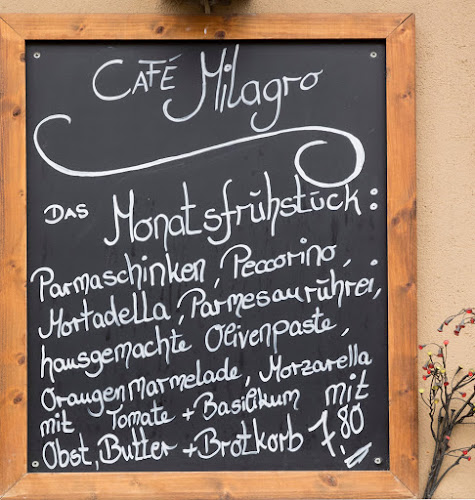 CAFÉ Milagro
DAS Monatsfrühstück:
Parmaschinken, Peccorino,
Mortadella, Parmesanrührei,
hausgemachte Olivenpaste,
Orangen Marmelade, Morzarella
mit Tomate + Basilikum mit
Obst, Butter + Brotkorb 7,80